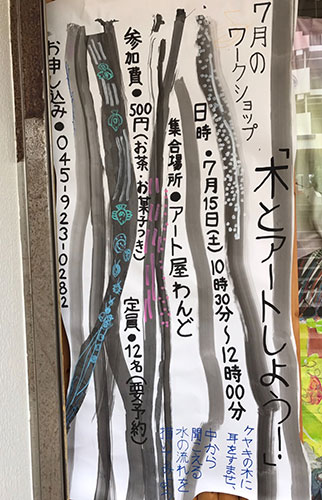 7月の
ワークショップ
「木とアートしよう！」
日時・7月15日(土) 10時30分〜12時00分
集合場所●アート屋わんど
参加費●500円(お茶・お菓子つき) 定員●12名(要予約)
お申し込み●045-923-0282
ケヤキの木に
耳をすませ、
中から
聞こえる
水の流れを